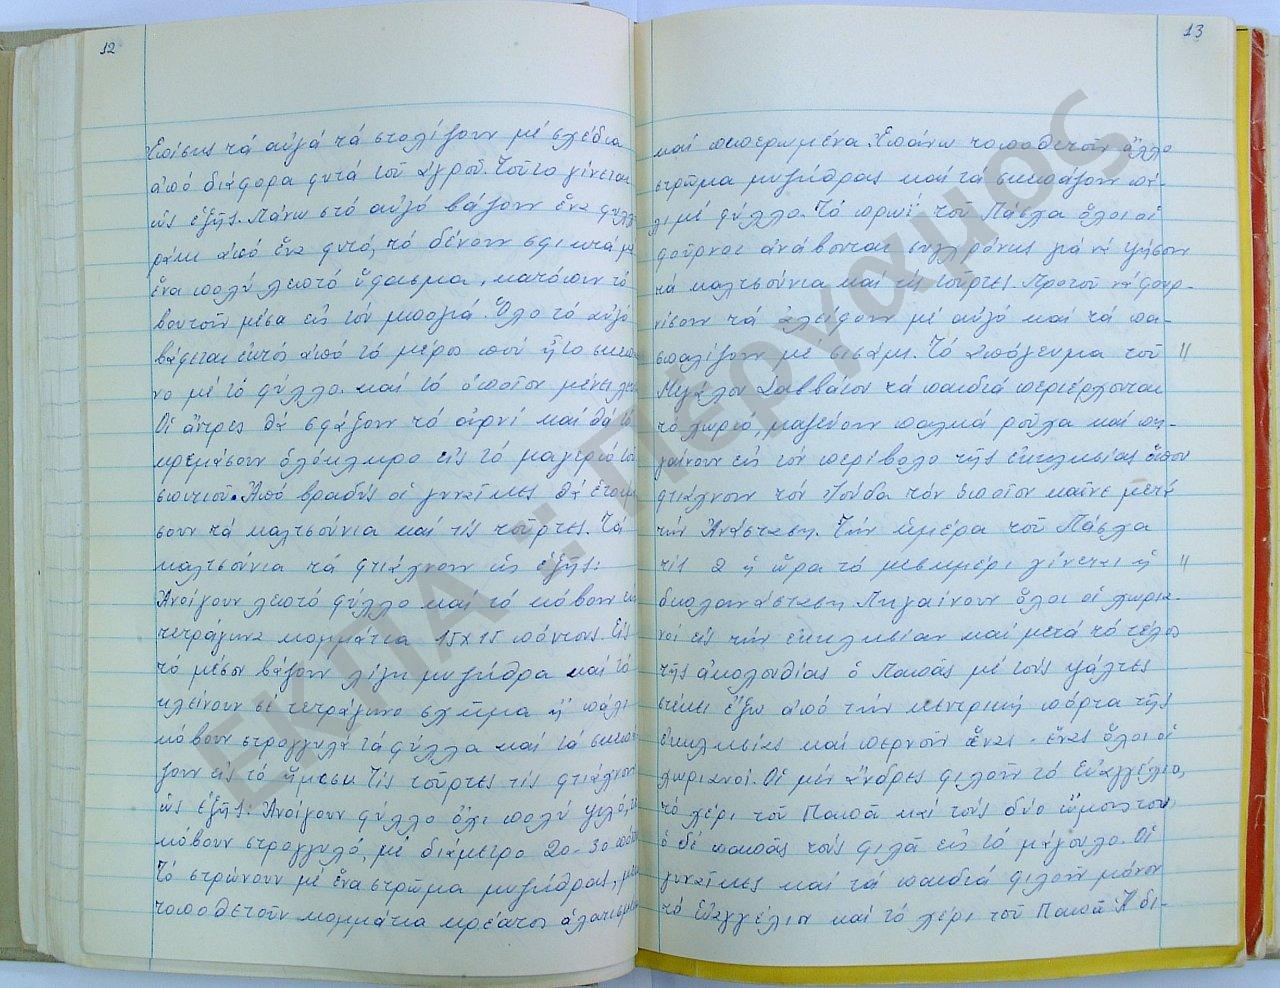 12
Ἐπίσης τά αὐγά τά στολίζουν μέ σχέδια
ἀπό διάφορα φυτά τοῦ ἀγροῦ. Τοῦτο γίνεται
ὡς ἑξῆς. Πάνω στό αὐγό βάζουν ἕνα φυλλα
ράκι ἀπό ἕνα φυτό, τό δένουν σφικτά μέ
ἕνα πολύ λεπτό ὕφασμα, κατόπιν τό
βουτοῦν μέσα εἰς τόν μπογιά. Ὅλο τό αὐγό
βάφεται ἐκτός ἀπό τό μέρος πού ἦτο σκεπα
νο μέ τό φύλλο καί τό ὁποῖον μένει
Οἱ ἄντρες θά σφάξουν τό ἀρνί καί θά τό
κρεμάσουν ὁλόκληρο εἰς τό μαγεριό τοῦ
σπιτιοῦ. Ἀπό βραδύς οἱ γυναῖκες θά ἑτοιμά
σουν τά καλτσούνια καί τίς τοῦρτες. Τά
καλτσούνια τά φτιάχνουν ὡς ἑξῆς:
Ἀνοίγουν λεπτό φύλλο καί τό κόβουν
τετράγωνα κομμάτια 15x15 πόντους. Εἰς
τό μέσον βάζουν λίγη μυζήθρα καί τό
κλείνουν σέ τετράγωνο σχῆμα ἤ πάλι
κόβουν στρογγυλά τά φύλλα καί τά σκεπά
ζουν εἰς τό ἥμισυ. Τίς τοῦρτες τίς φτιάχνουν
ὡς ἑξῆς: Ἀνοίγουν φύλλο ὄχι πολύ ψιλό, τό
κόβουν στρογγυλό, μέ διάμετρο 20-30 πόντ
Τό στρώνουν μέ ἕνα στρῶμα μυζήθρας, μετά
τοποθετοῦν κομμάτια κρέατος ἁλατισμένα
13
καί πιπερωμένα. Ἐπάνω τοποθετοῦν ἄλλο
στρῶμα μυζήθρας καί τά σκεπάζουν πά-
λι μέ φύλλο. Τό πρωί τοῦ Πάσχα ὅλοι οἱ
φοῦρνοι ἀνάβονται συγχρόνως γιά νά ψήσουν
τά καλτσούνια καί τίς τοῦρτες. Προτοῦ νά φουρ-
νίσουν τά ἀλείφουν μέ αὐγό καί τά πα-
σπαλίζουν μέ σισάμι. Τό ἀπόγευμα τοῦ "
Μεγάλου Σαββάτου τά παιδιά περιέρχονται
τό χωριό, μαζεύουν παλιά ροῦχα καί πη-
γαίνουν εἰς τόν περίβολο τῆς ἐκκλησίας ὅπου
φτιάχνουν τόν Ἰούδα τόν ὁποῖον καῖνε μετά
τήν Ἀνάσταση. Τήν ἡμέρα τοῦ Πάσχα
τίς 2 ἡ ὥρα τό μεσημέρι γίνεται ἡ "
διπλανάσταση. Πηγαίνουν ὅλοι οἱ χωρια-
νοί εἰς τήν ἐκκλησίαν καί μετά τό τέλος
τῆς ἀκολουθίας ὁ Παπᾶς μέ τούς ψάλτες
στέκει ἔξω ἀπό τήν κεντρική πόρτα τῆς
ἐκκλησίας καί περνοῦν ἕνας - ἕνας ὅλοι οἱ
χωριανοί. Οἱ μέν ἄνδρες φιλοῦν τό Εὐαγγέλιο,
τό χέρι τοῦ Παπᾶ καί τούς δύο ὤμους του,
ὁ δέ παπᾶς τούς φιλᾶ εἰς τό μάγουλο. Οἱ
γυναῖκες καί τά παιδιά φιλοῦν μόνον
τό Εὐαγγέλιον καί τό χέρι τοῦ Παπᾶ. Ἡ δι-
ΕΚΠΑ :: Πέργαμος